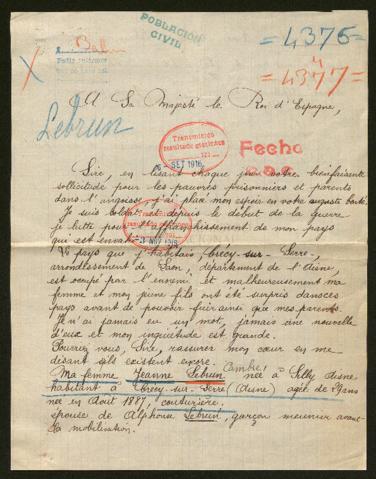 POBLACIÓN
CIVIL
= 4376 =
= 4377 =
A Sa Majesté le Roi d'Espagne,
Lebrun
Transmitido
resultado gestiones
SET 1916
Fecha
Sire, en lisant chaque jour votre bienfaisante
sollicitude pour les pauvres prisonniers et parents
dans l'angoisse j'ai placé mon espoir en votre auguste bonté.
Je suis soldat depuis le debut de la guerre
je lutte pour l'affranchissement de mon pays
qui est envahi
Le pays que j'habitais, Crécy-sur-Serre,
arrondissement de Laon, département de l'Aisne,
est occupé par l'ennemi et malheureusement ma
femme et mon jeune fils ont été surpris dans ce
pays avant de pouvoir fuir ainsi que mes parents.
Je n'ai jamais eu un mot, jamais une nouvelle
d'eux et mon inquiétude est grande.
Pourrez vous, Sire, rassurer mon cœur en me
disant s'ils existent encore.
Ma femme Jeanne Lebrun née à Silly Aisne
habitant à Crécy-sur-Serre (Aisne) agée de 29 ans
née en Août 1887, couturière.
épouse de Alphonse Lebrun, garçon meunier avant
la mobilisation.